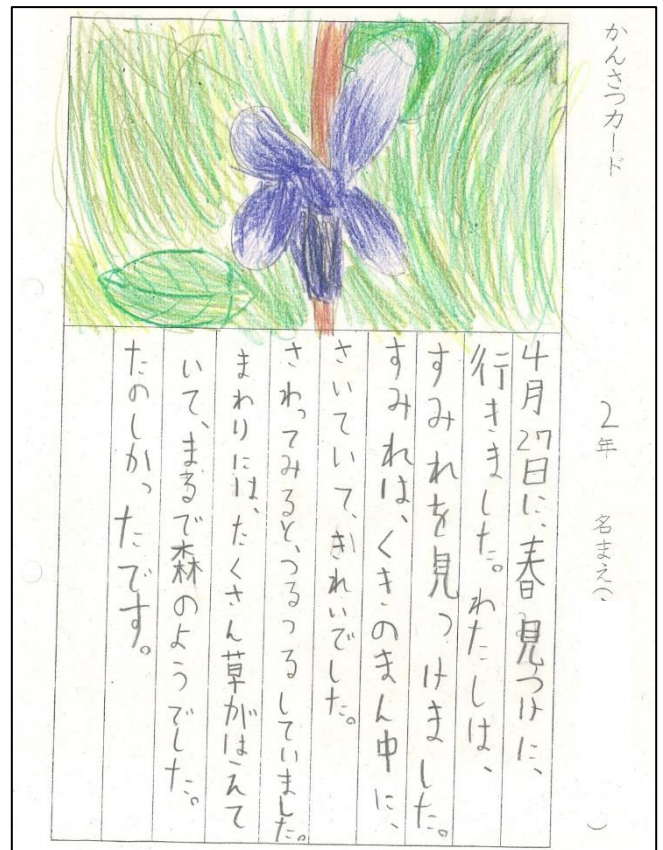 かんさつカード
2年 名まえ( )
4月27日に、春見つけに、
行きました。わたしは、
すみれを見つけました。
すみれは、くきのまん中に、
さいていて、きれいでした。
さわってみると、つるつるしていました。
まわりには、たくさん草がはえて
いて、まるで森のようでした。
たのしかったです。